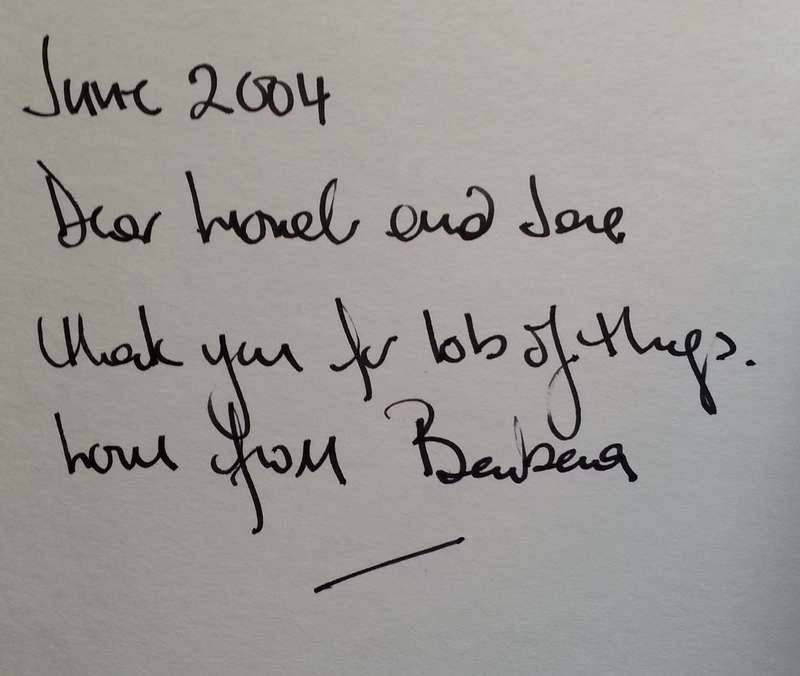 June 2004
Dear Lionel and Jane
thank you for lots of things.
Love from Barbara